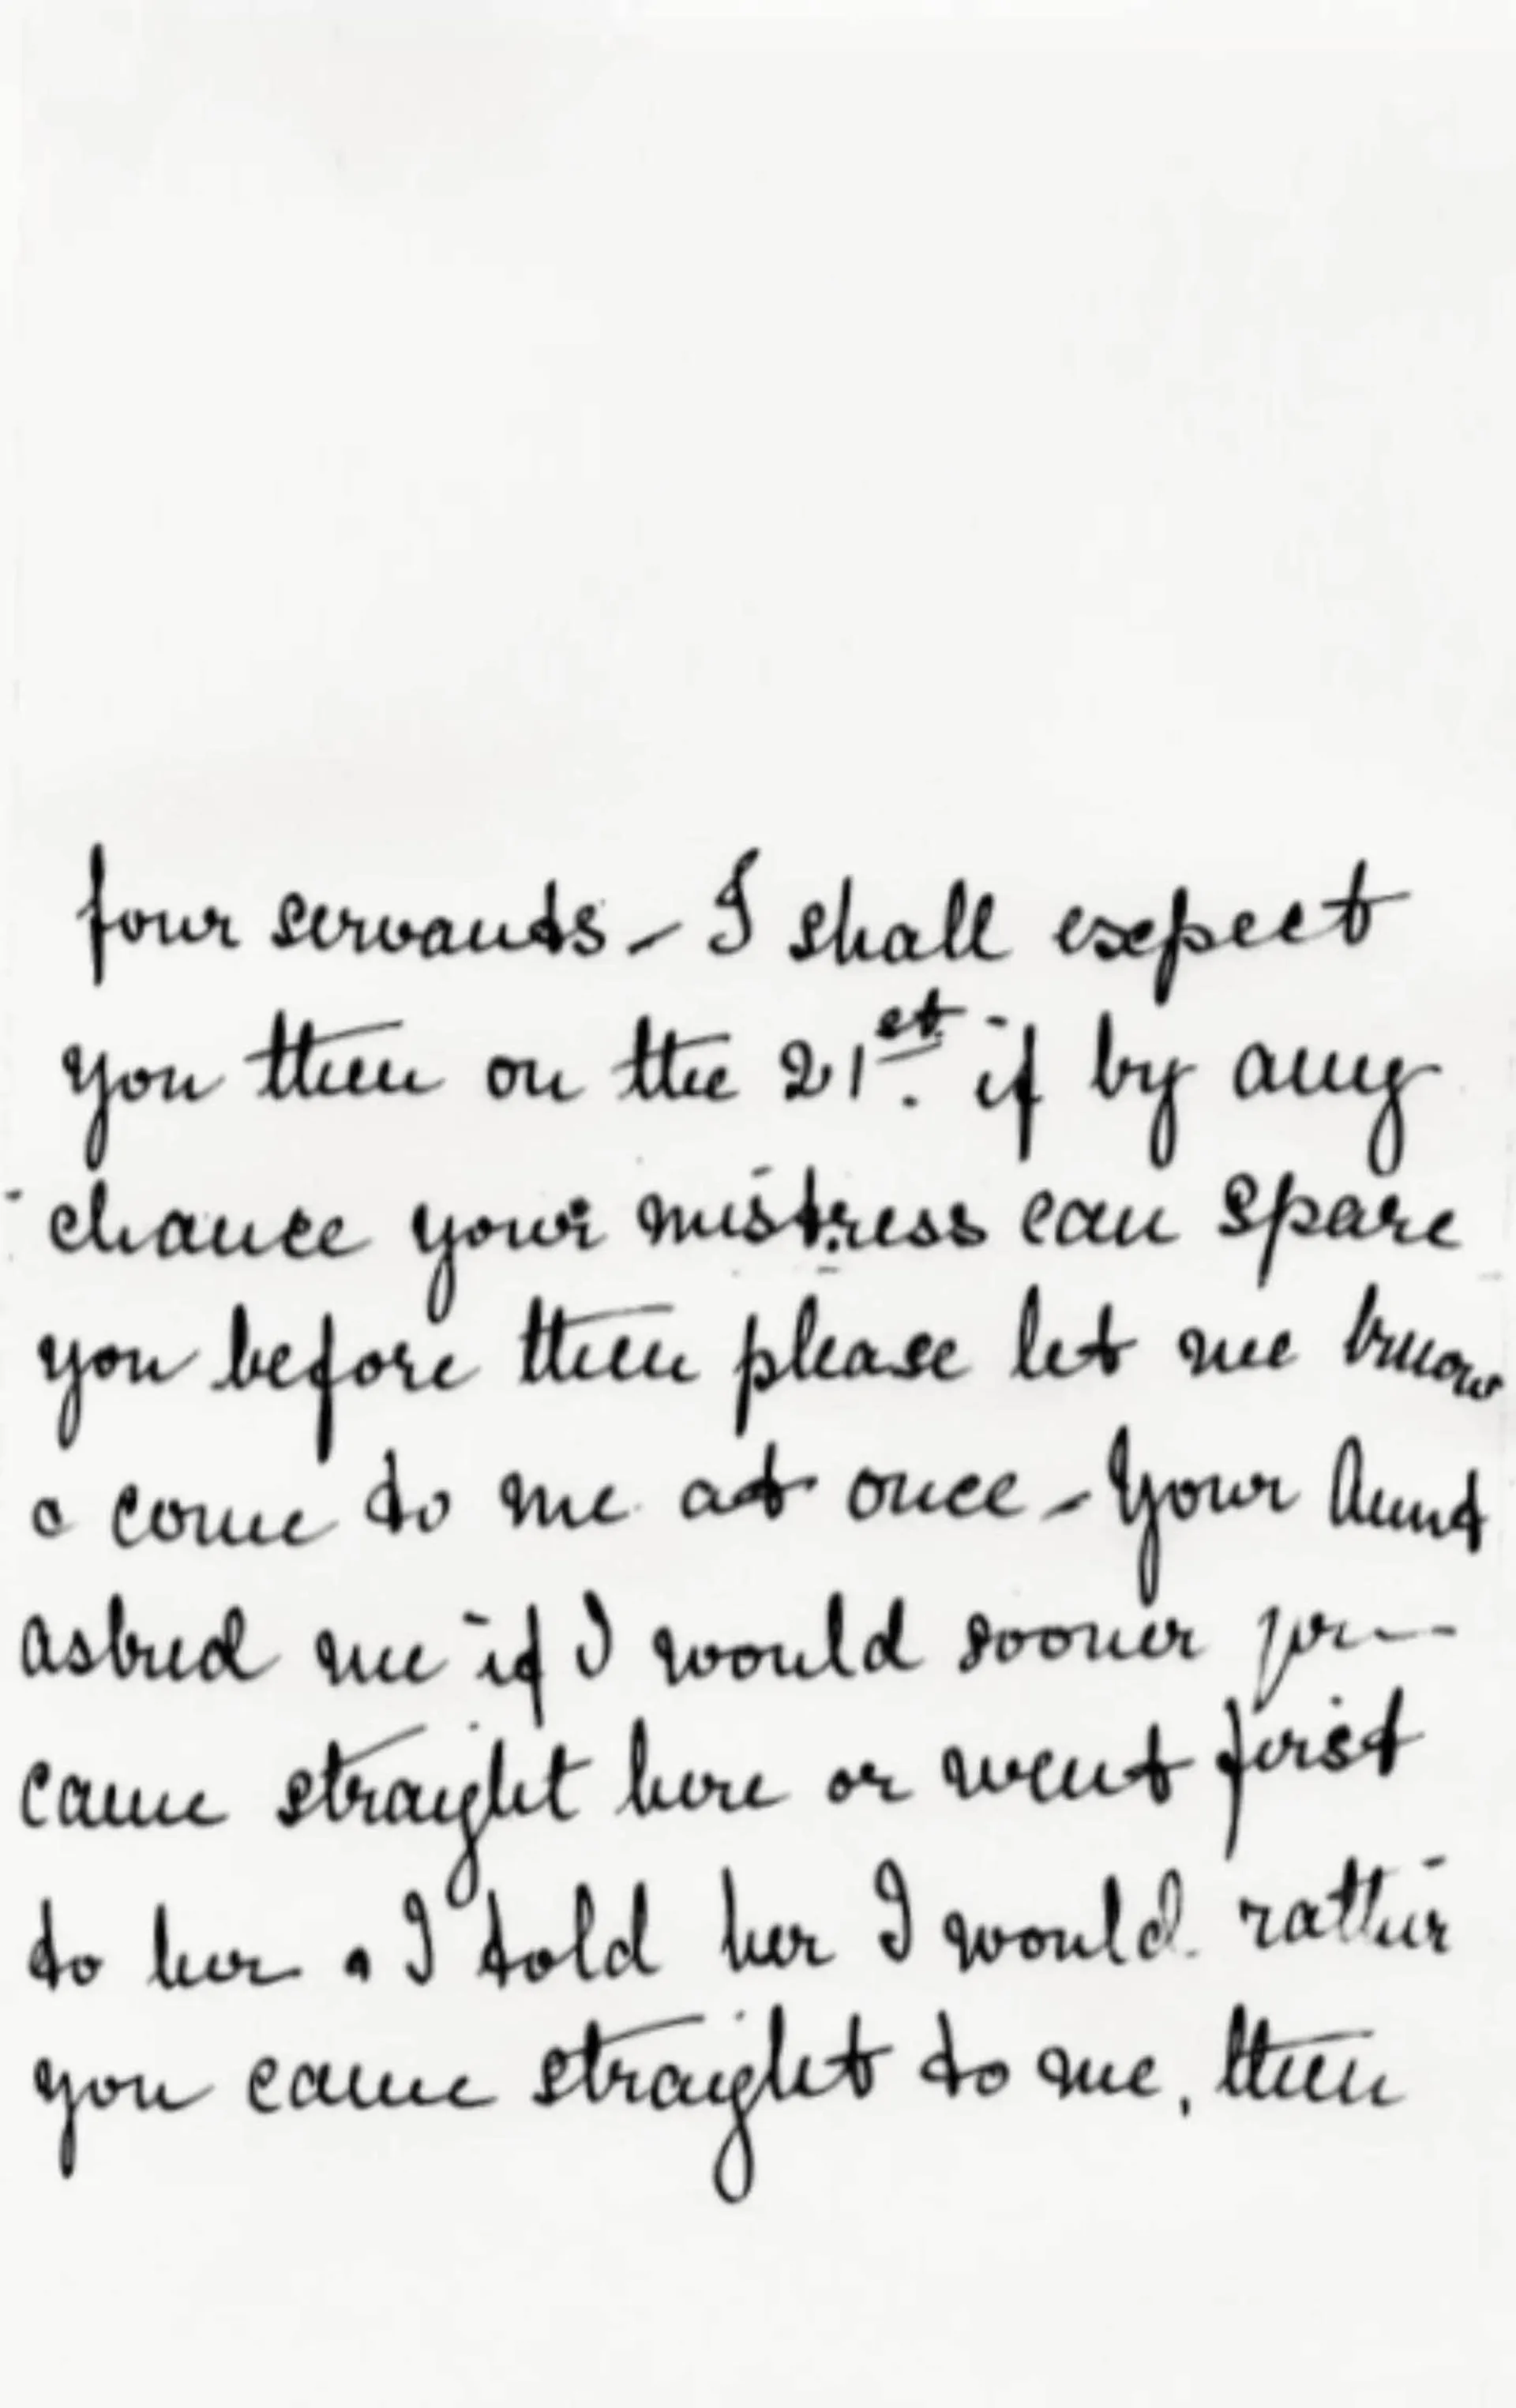 four servants - I shall expect
you then on the 21st. if by any
chance your mistress can spare
you before then please let me know
& come to me at once - Your Aunt
asked me if I would sooner you
came straight here or went first
to her & I told her I would rather
you came straight to me, then